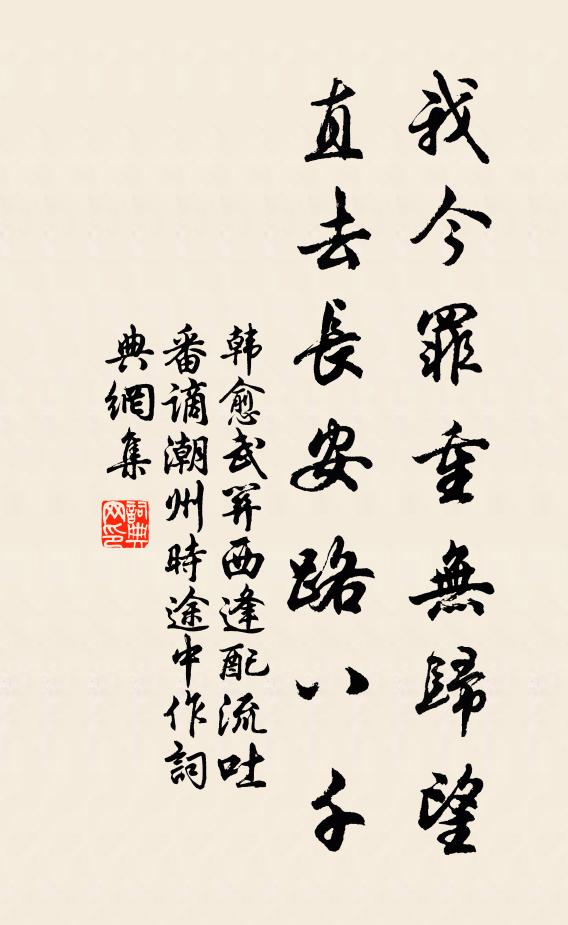 我今罪重無歸望
直去長安路八千
韩愈武关西逢配流吐
番谪潮州時途中作詞
典網集
詞典网印